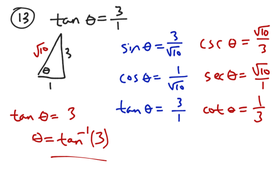 13 tan θ = 3/1
√10 3
θ
1
sin θ = 3/√10 csc θ = √10/3
cos θ = 1/√10 sec θ = √10/1
tan θ = 3/1 cot θ = 1/3
tan θ = 3
θ = tan⁻¹(3)